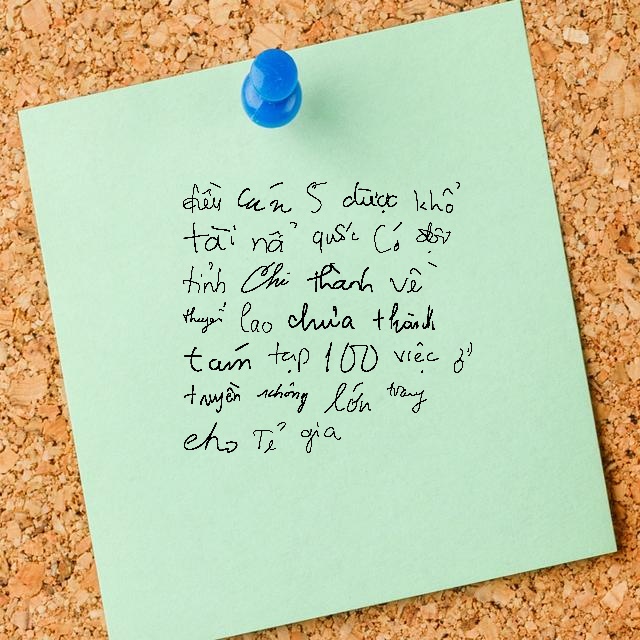 điều Cán 5 được khổ
tài nả quốc Có
tỉnh Chi thành về
thuyền lao chưa thành
tam tạp 100 việc ở
truyền nhông lớn trong
cho Tể gia